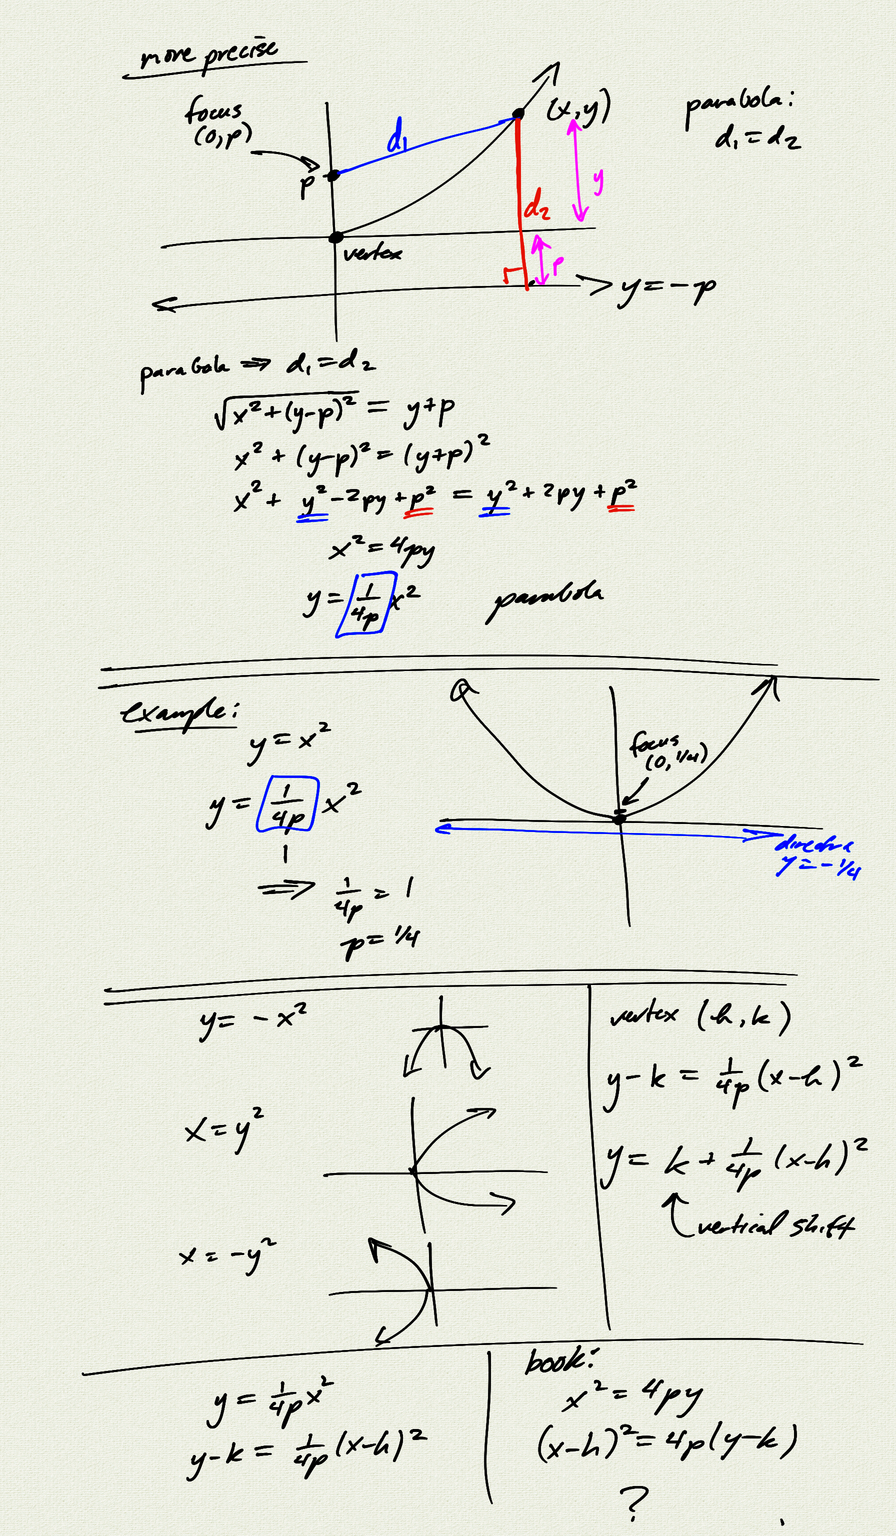 more precise
focus
(0,p)
p
d₁
(x,y)
parabola:
d₁ = d₂
y
d₂
vertex
p
y = -p
parabola ⇒ d₁ = d₂
√(x² + (y-p)²) = y+p
x² + (y-p)² = (y+p)²
x² + y² - 2py + p² = y² + 2py + p²
x² = 4py
y = 1/4p x²
parabola
example:
y = x²
y = 1/4p x²
1
⇒ 1/4p = 1
p = 1/4
focus
(0, 1/4)
y = -1/4
y = -x²
x = y²
x = -y²
vertex (h,k)
y-k = 1/4p (x-h)²
y = k + 1/4p (x-h)²
vertical shift
y = 1/4p x²
y-k = 1/4p (x-h)²
book:
x² = 4py
(x-h)² = 4p(y-k)
?